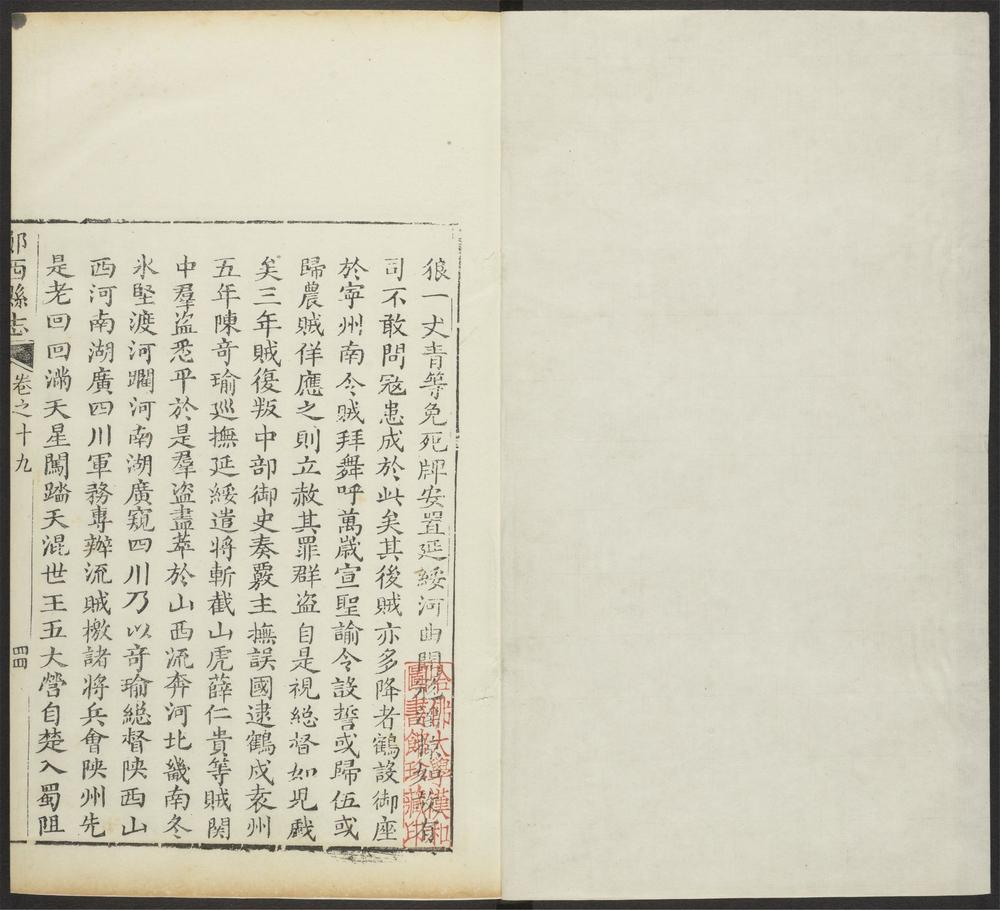 狼一丈青等免死牌安置延綏河曲間有
司不敢問寇患成於此矣其後賊亦多降者鶴設御座
於寧州南令賊拜舞呼萬歲宣聖諭令設誓或歸伍或
歸農賊佯應之則立赦其罪群盜自是視總督如兒戲
矣三年賊復叛中部御史奏覈主撫誤國逮鶴戍袁州
五年陳奇瑜巡撫延綏遣將斬截山虎薛仁貴等賊関
中羣盜悉平於是羣盜盡萃於山西流奔河北畿南冬
氷堅渡河躙河南湖廣窺四川乃以奇瑜總督陝西山
西河南湖廣四川軍務專辦流賊檄諸將兵會陝州先
是老回回滿天星闖踏天混世王五大營自楚入蜀阻
鄖西縣志
卷之十九
四四
哈佛大學漢和
圖書館珍藏印